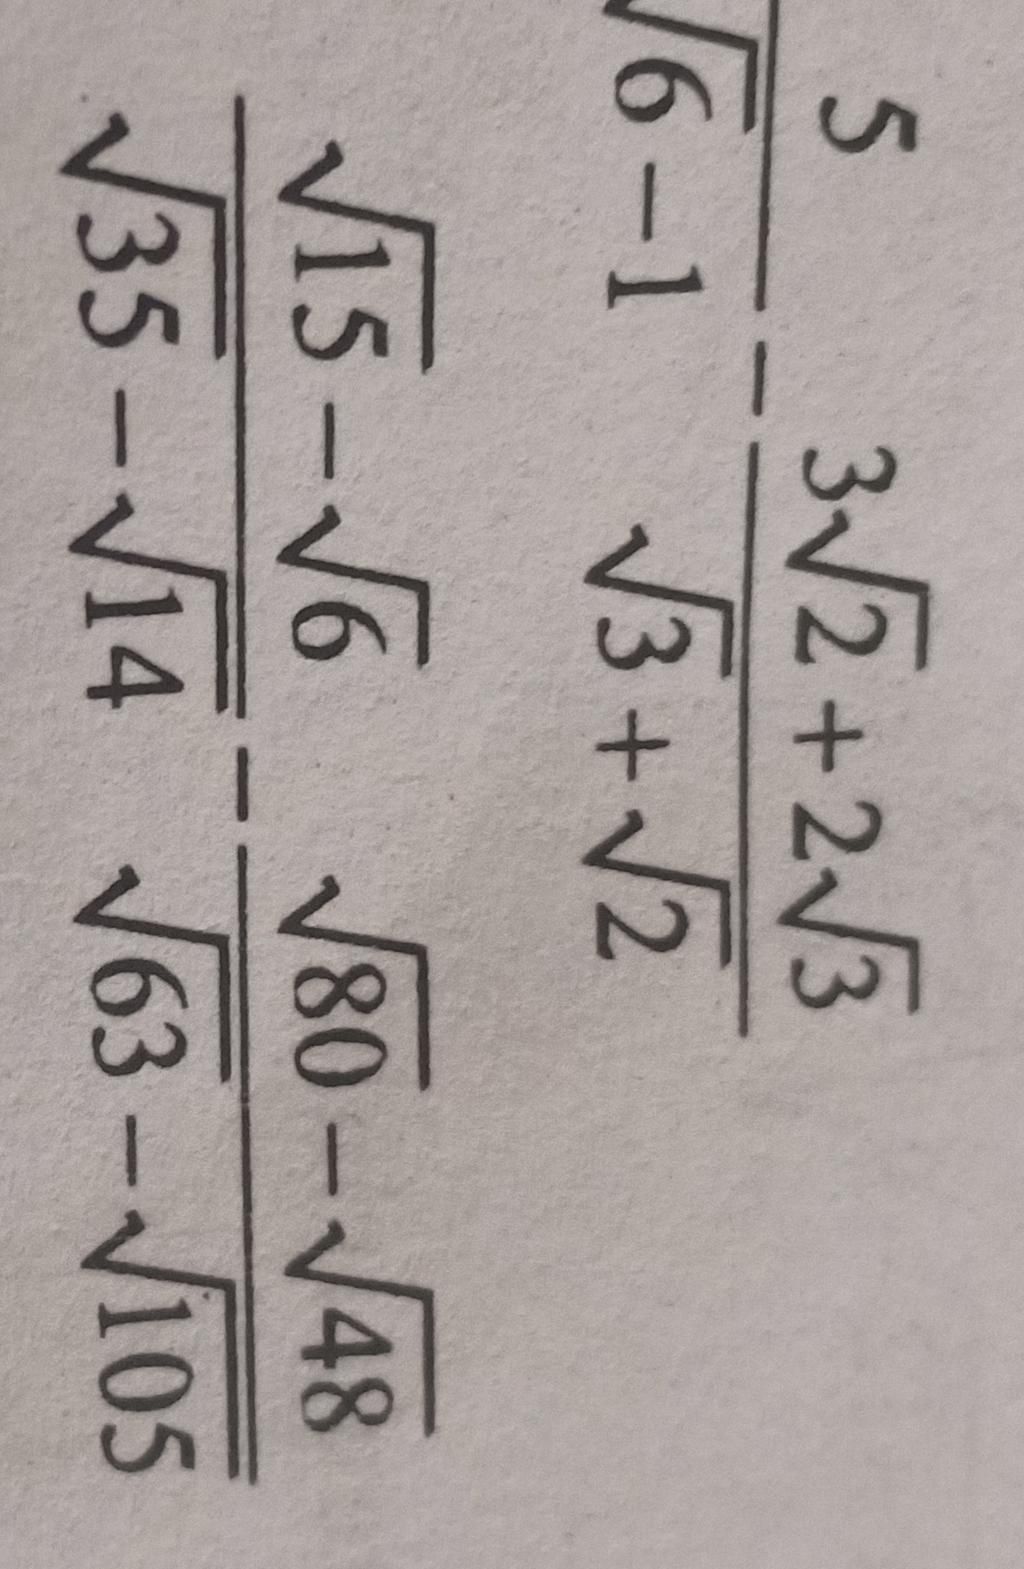 5/(√6 − 1) − (3√2 + 2√3)/(√3 + √2)
(√15 − √6)/(√35 − √14) − (√80 − √48)/(√63 − √105)